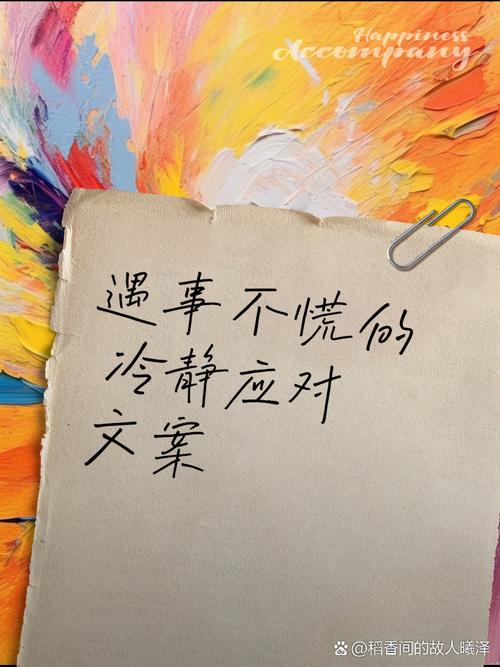 Happiness
Accompany
遇事不慌的
冷静应对
文案
@稻香间的故人曦泽